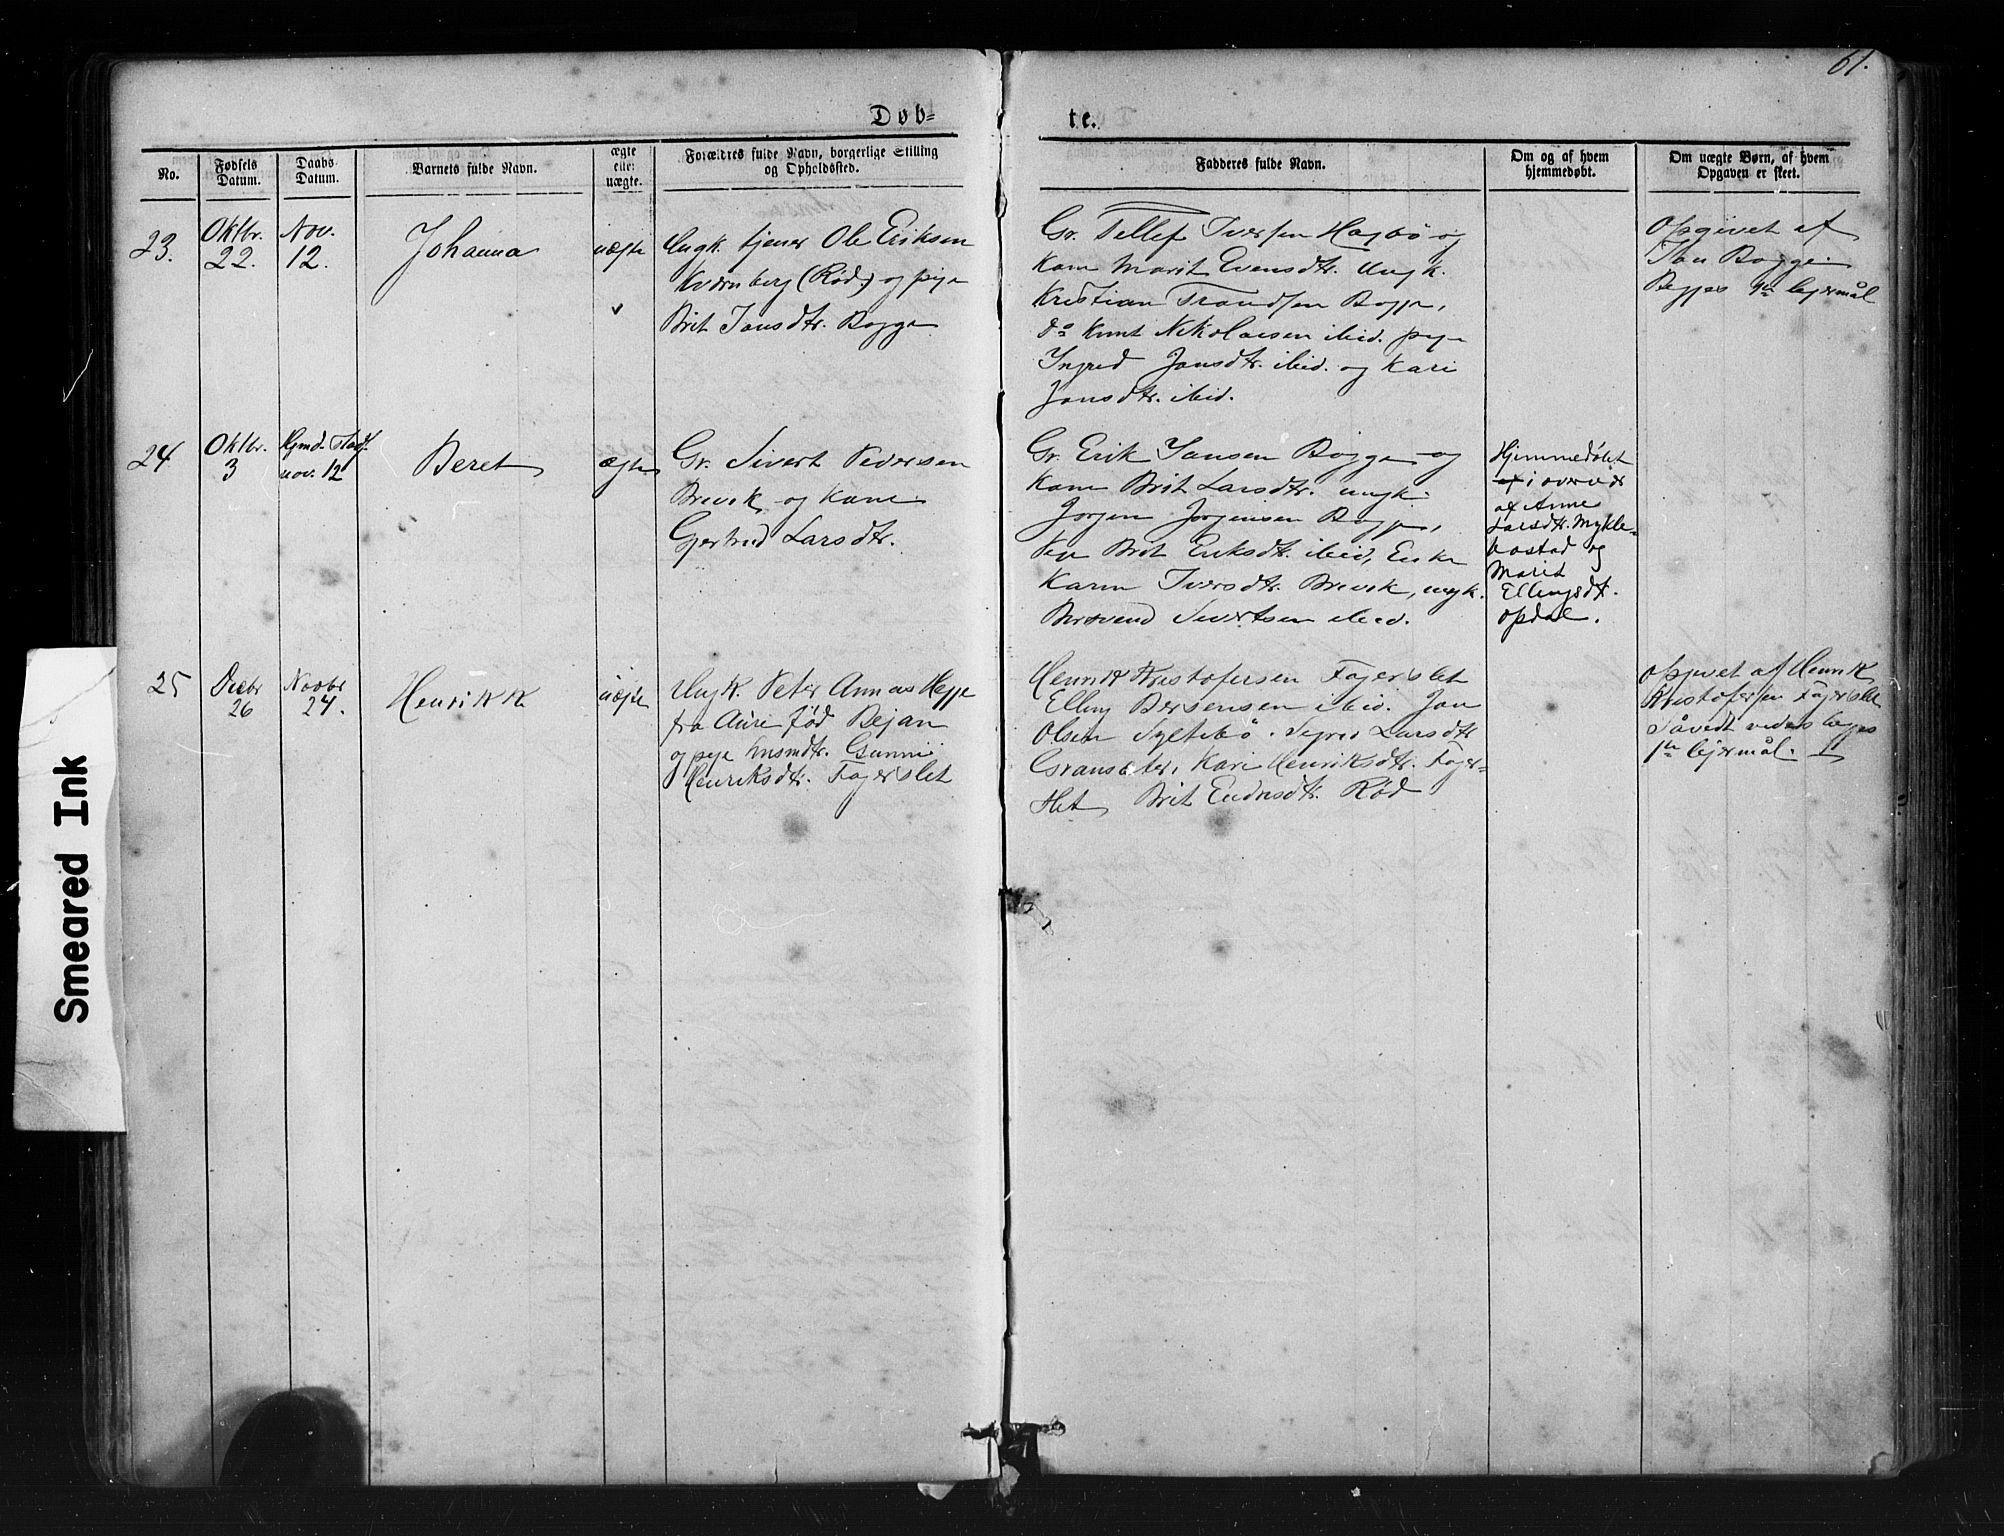 61.
Døb=
te.
No.
Fødsels Datum.
Daabs Datum.
Barnets fulde Navn.
ægte eller uægte.
Forældres fulde Navn, borgerlige Stilling
og Opholdssted.
Fadderes fulde Navn.
Om og af hvem
hjemmedøbt.
Om uægte Børn, af hvem
Opgaven er skeet.
23.
Oktbr.
22.
Nov.
12.
Johanna
uægte
Ungk. tjener Ole Eriksen
Kvernberg (Rød) og pige
Brit Jansdtr. Bogge
Gr. Tellef Iversen Hagbø og
Kone Marit Evensdtr. Ungk.
Kristian Trondsen Bogge,
do Knut Nikolaisen ibid. pige
Ingred Jansdtr. ibid. og Kari
Jonsdtr. ibid.
opgivet af
Jan Bogge.
Begges 1ste lejermål
24
Oktbr.
3
Hjmd.
nov. 12
Beret
ægte
Gr. Sivert Pedersen
Brevik og Kone
Gjertrud Larsdtr.
Gr. Erik Jansen Bogge og
Kone Brit Larsdtr. ungk.
Jørgen Jørgensen Bogge,
Pige Brit Eriksdtr. ibid, Enke
Karen Iversdtr. Brevik, ungk.
Sivertsen ibid.
Hjemmedøbt
af i
af Anne
Larsdtr. Mykle-
bostad og
Marit
Ellingsdtr.
Opdøl.
25
Decbr
26
Novbr
24.
Henrikk
uægte
Ungk. Peter Annæus Hegge
fra Aure fød Bejan
og pige husmdtr. Gunni
Henriksdtr. Fagerslet
Henrik Kristofersen Fagerslet
Elling Bersensen ibid. Jon
Olsen Syltebø. Sigrid Larsdtr
Gransæter, Kari Henriksdtr. Fager-
slet Brit Endresdtr. Rød
opgivet af Henrik
Kristofersen Fagerslet
Såvidt vides begges
1ste lejermål.
Smeared Ink